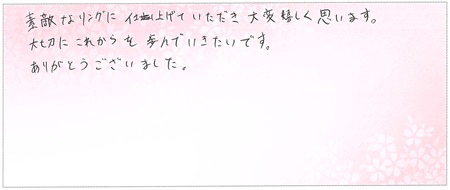 素敵なリングに仕上げていただき大変嬉しく思います。
大切にこれからを歩んでいきたいです。
ありがとうございました。